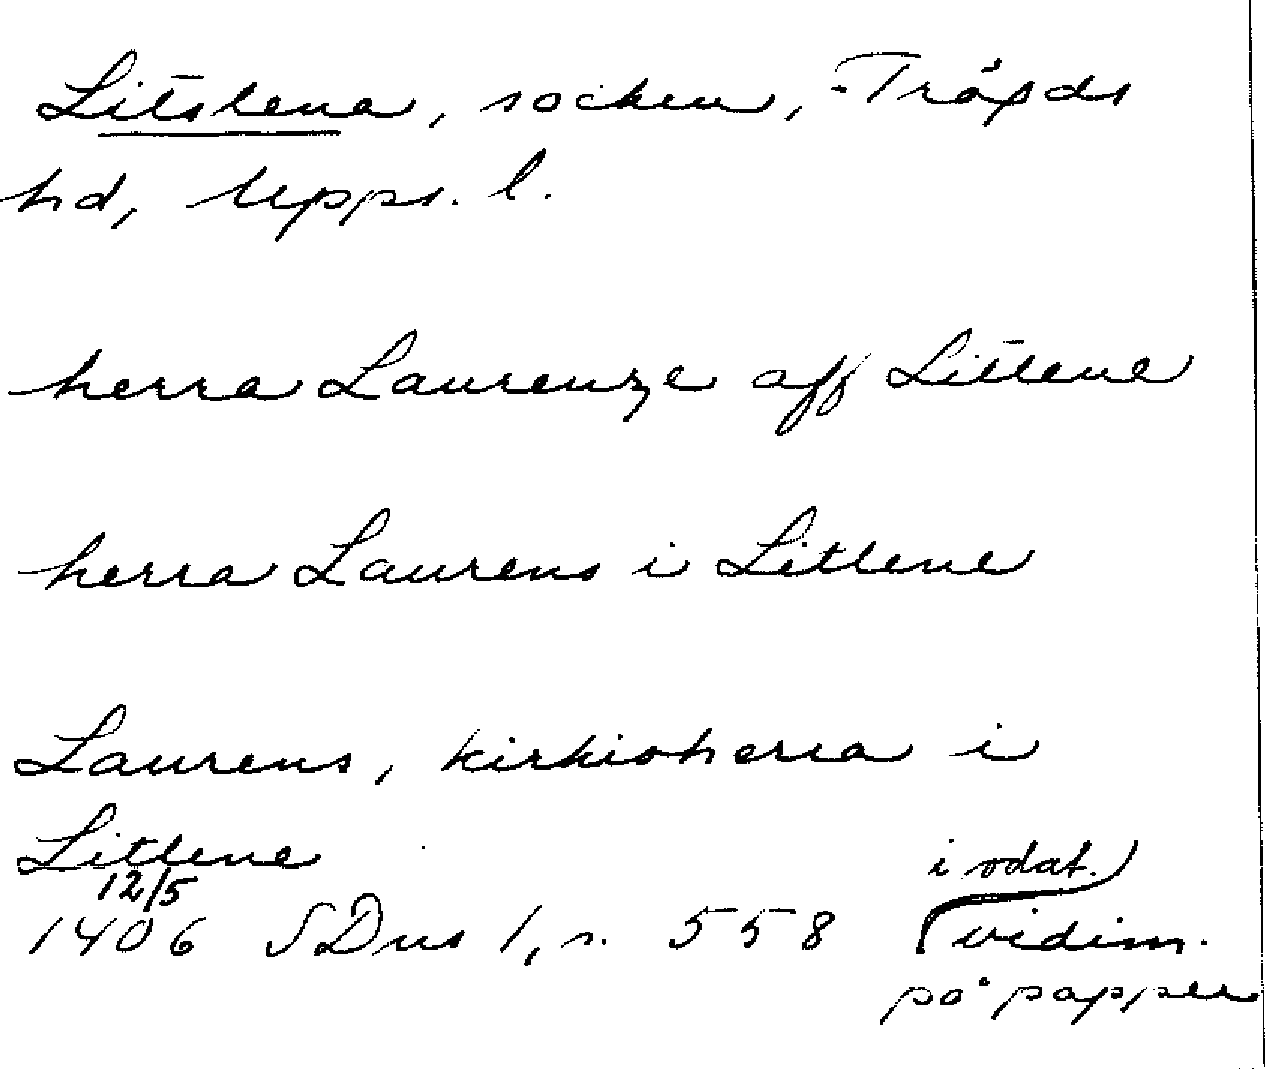 Litslena, socken, Trögds
hd, Upps. l.
herra Laurenze aff Litlene
herra Laurens i Litlene
Laurens, kirkioherra i
Litlene
12/5
1406 SDns 1, s. 558
i odat.)
vidim.
på papper